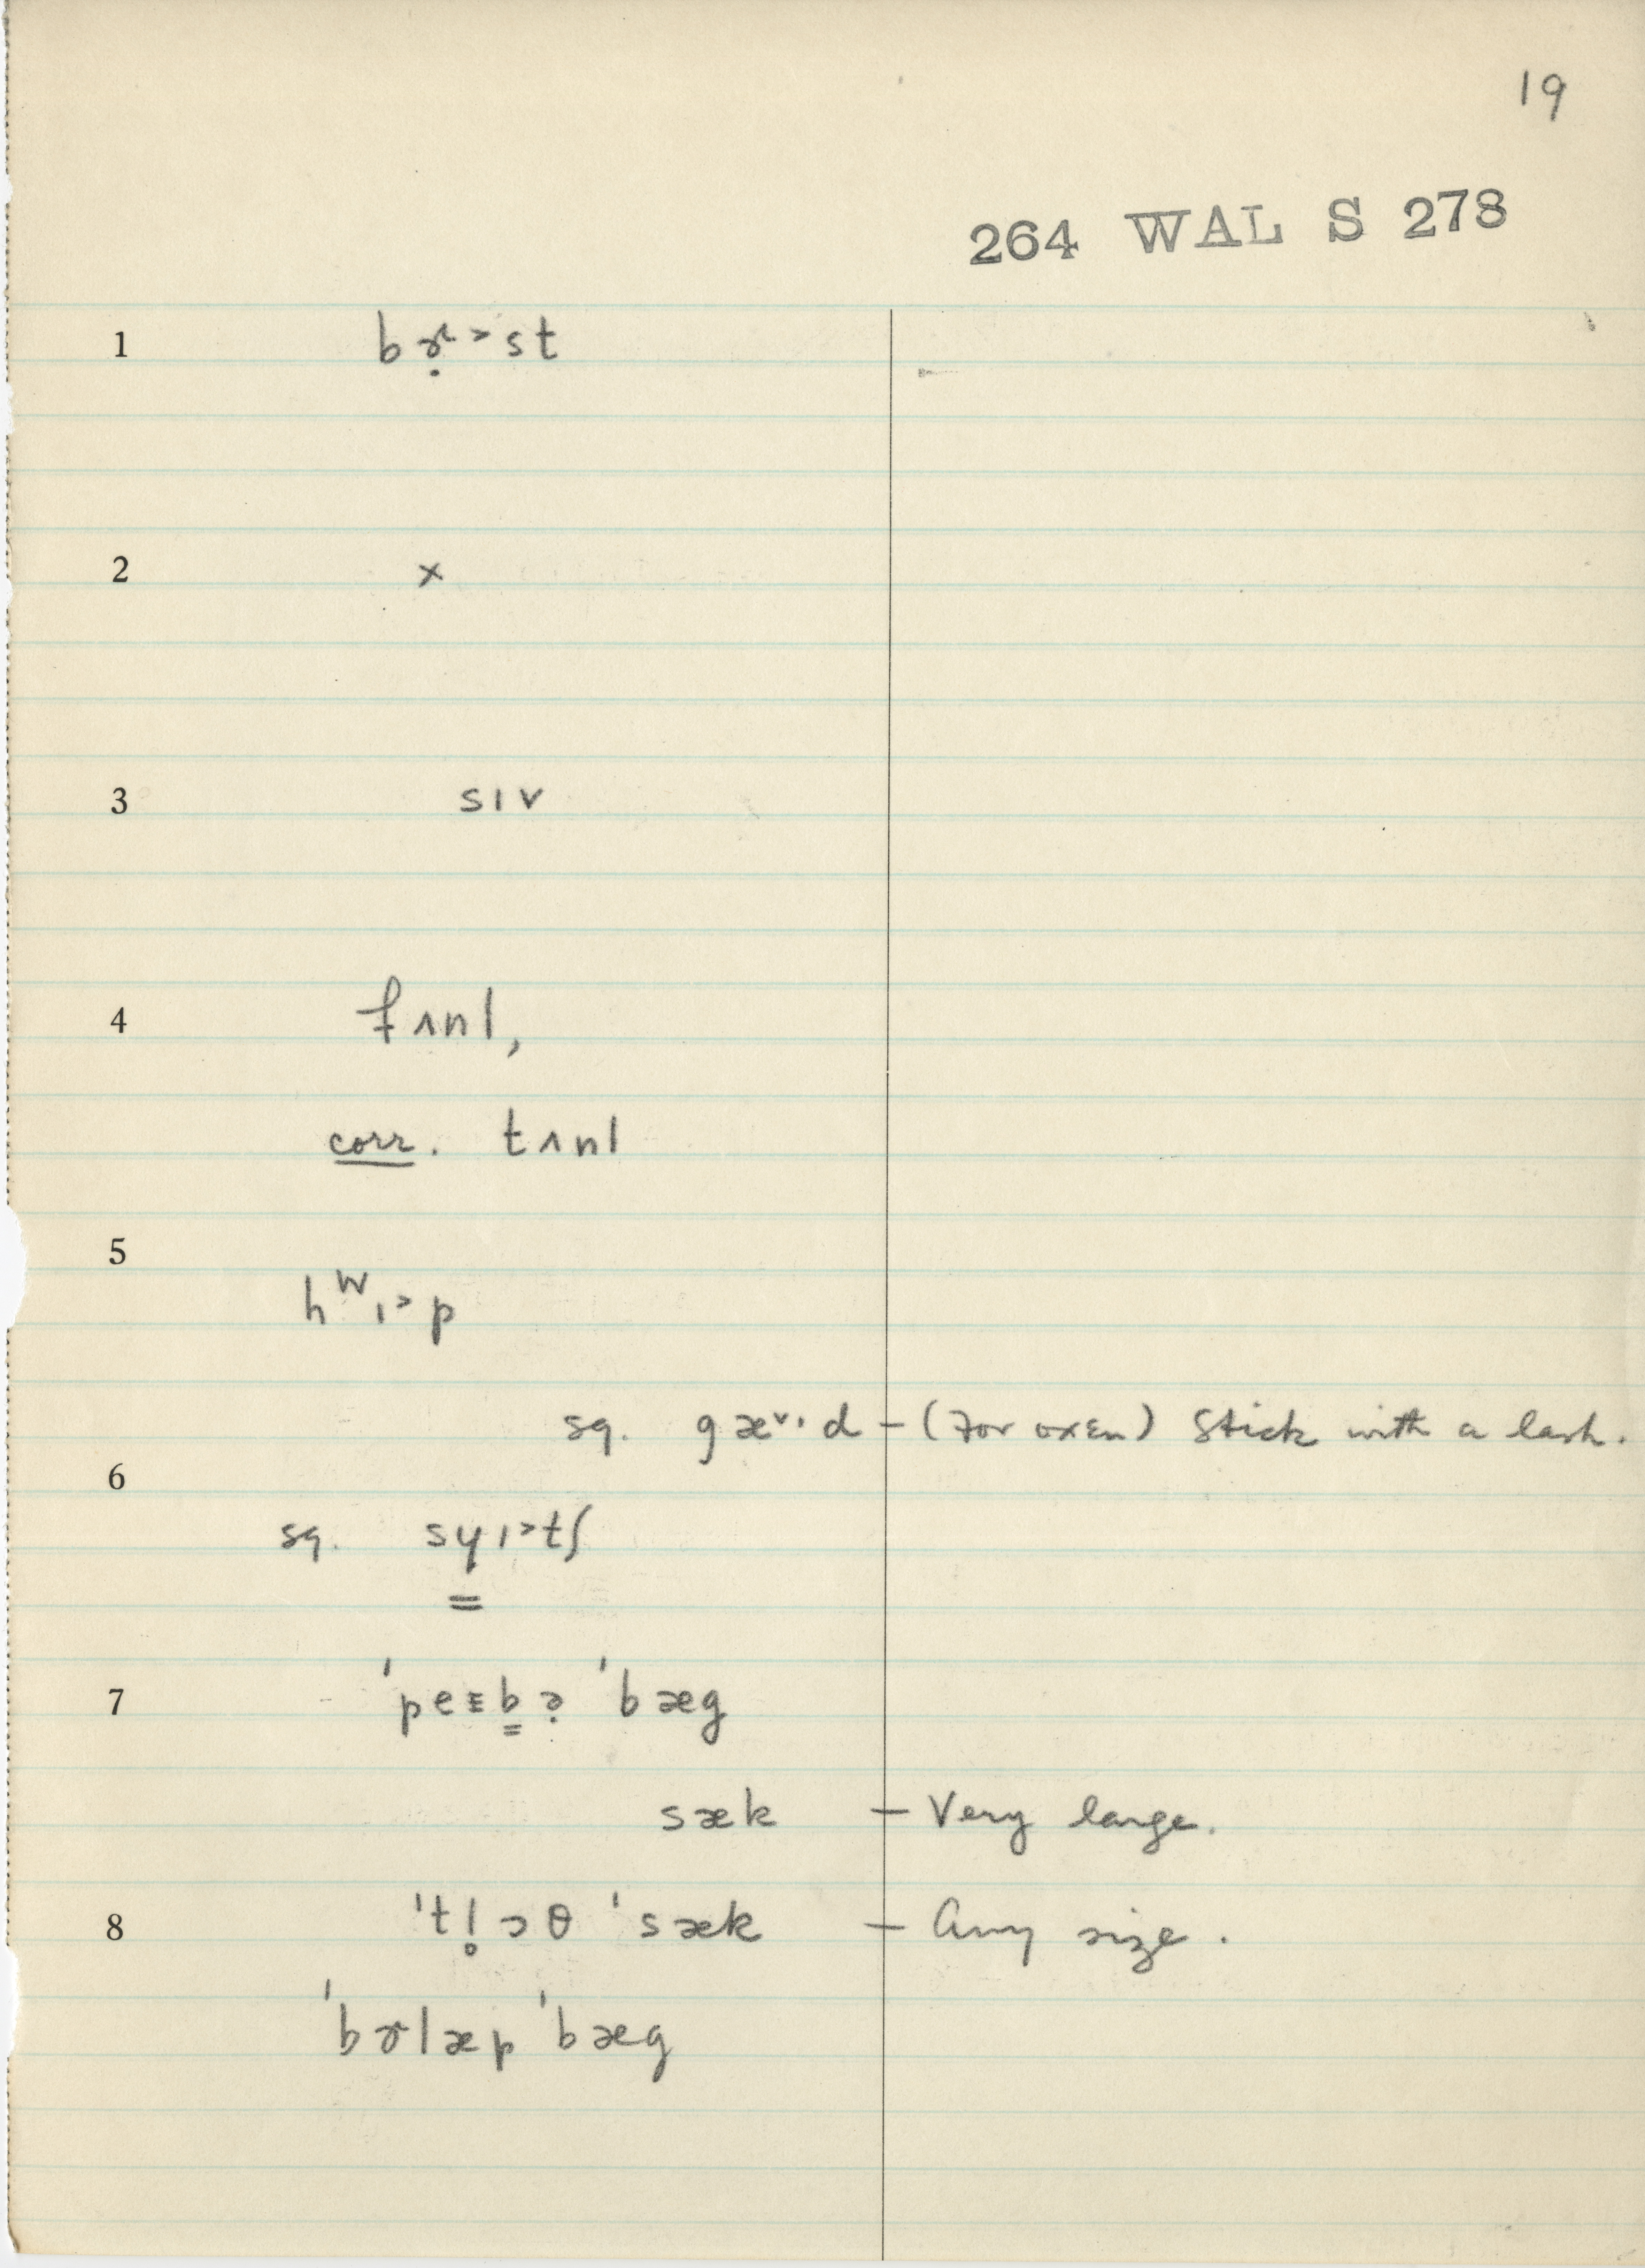 19
264 WAL S 278
1 bɚ̣˃st
2 ×
3 sɪv
4 fʌnl,
corr. tʌnl
5
hᵂɪ˃p
sq. gæ˅·d – (For oxen) Stick with a lash.
6
sq. sɥɪ˃tʃ
7 ˈpeɪb̳ə̣ ˈbæg
sæk – Very large.
8 ˈtl̥ɔθ ˈsæk – Any size.
ˈbɚlæp ˈbæg